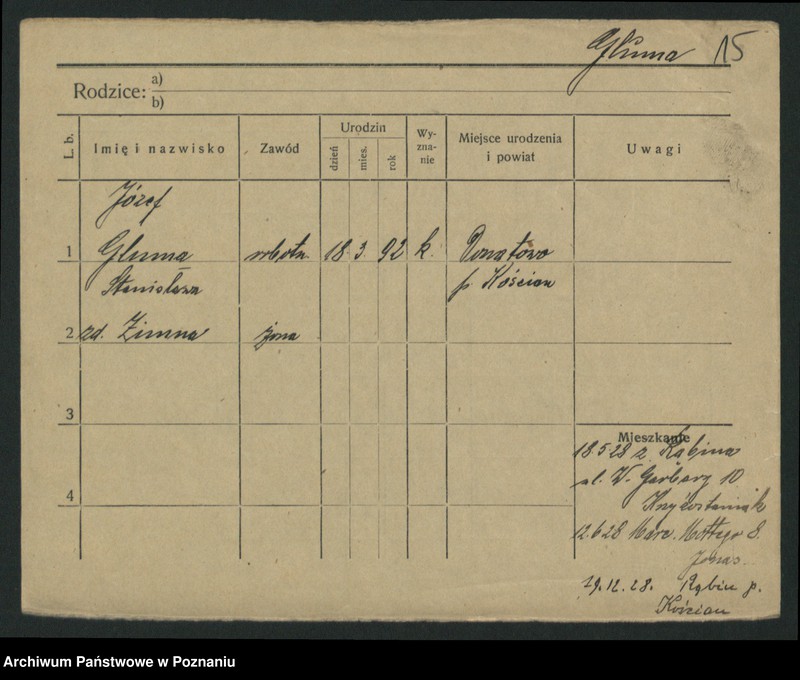 Gluma 15
Rodzice: a)
b)
L. b.
Imię i nazwisko
Zawód
Urodzin
dzień
mies.
rok
Wy-
zna-
nie
Miejsce urodzenia
i powiat
Uwagi
Józef
1 Gluma robotn. 18 3 92 k. Donatowo
Stanisława p. Kościan
2 zd. Zimna żona
3
Mieszkanie
18.5.28 z Rąbina
ul. W. Garbary 10
4
12.6.28 Marc. Mottego 8.
Jonas
29.12.28. Rąbin p.
Kościan
Archiwum Państwowe w Poznaniu